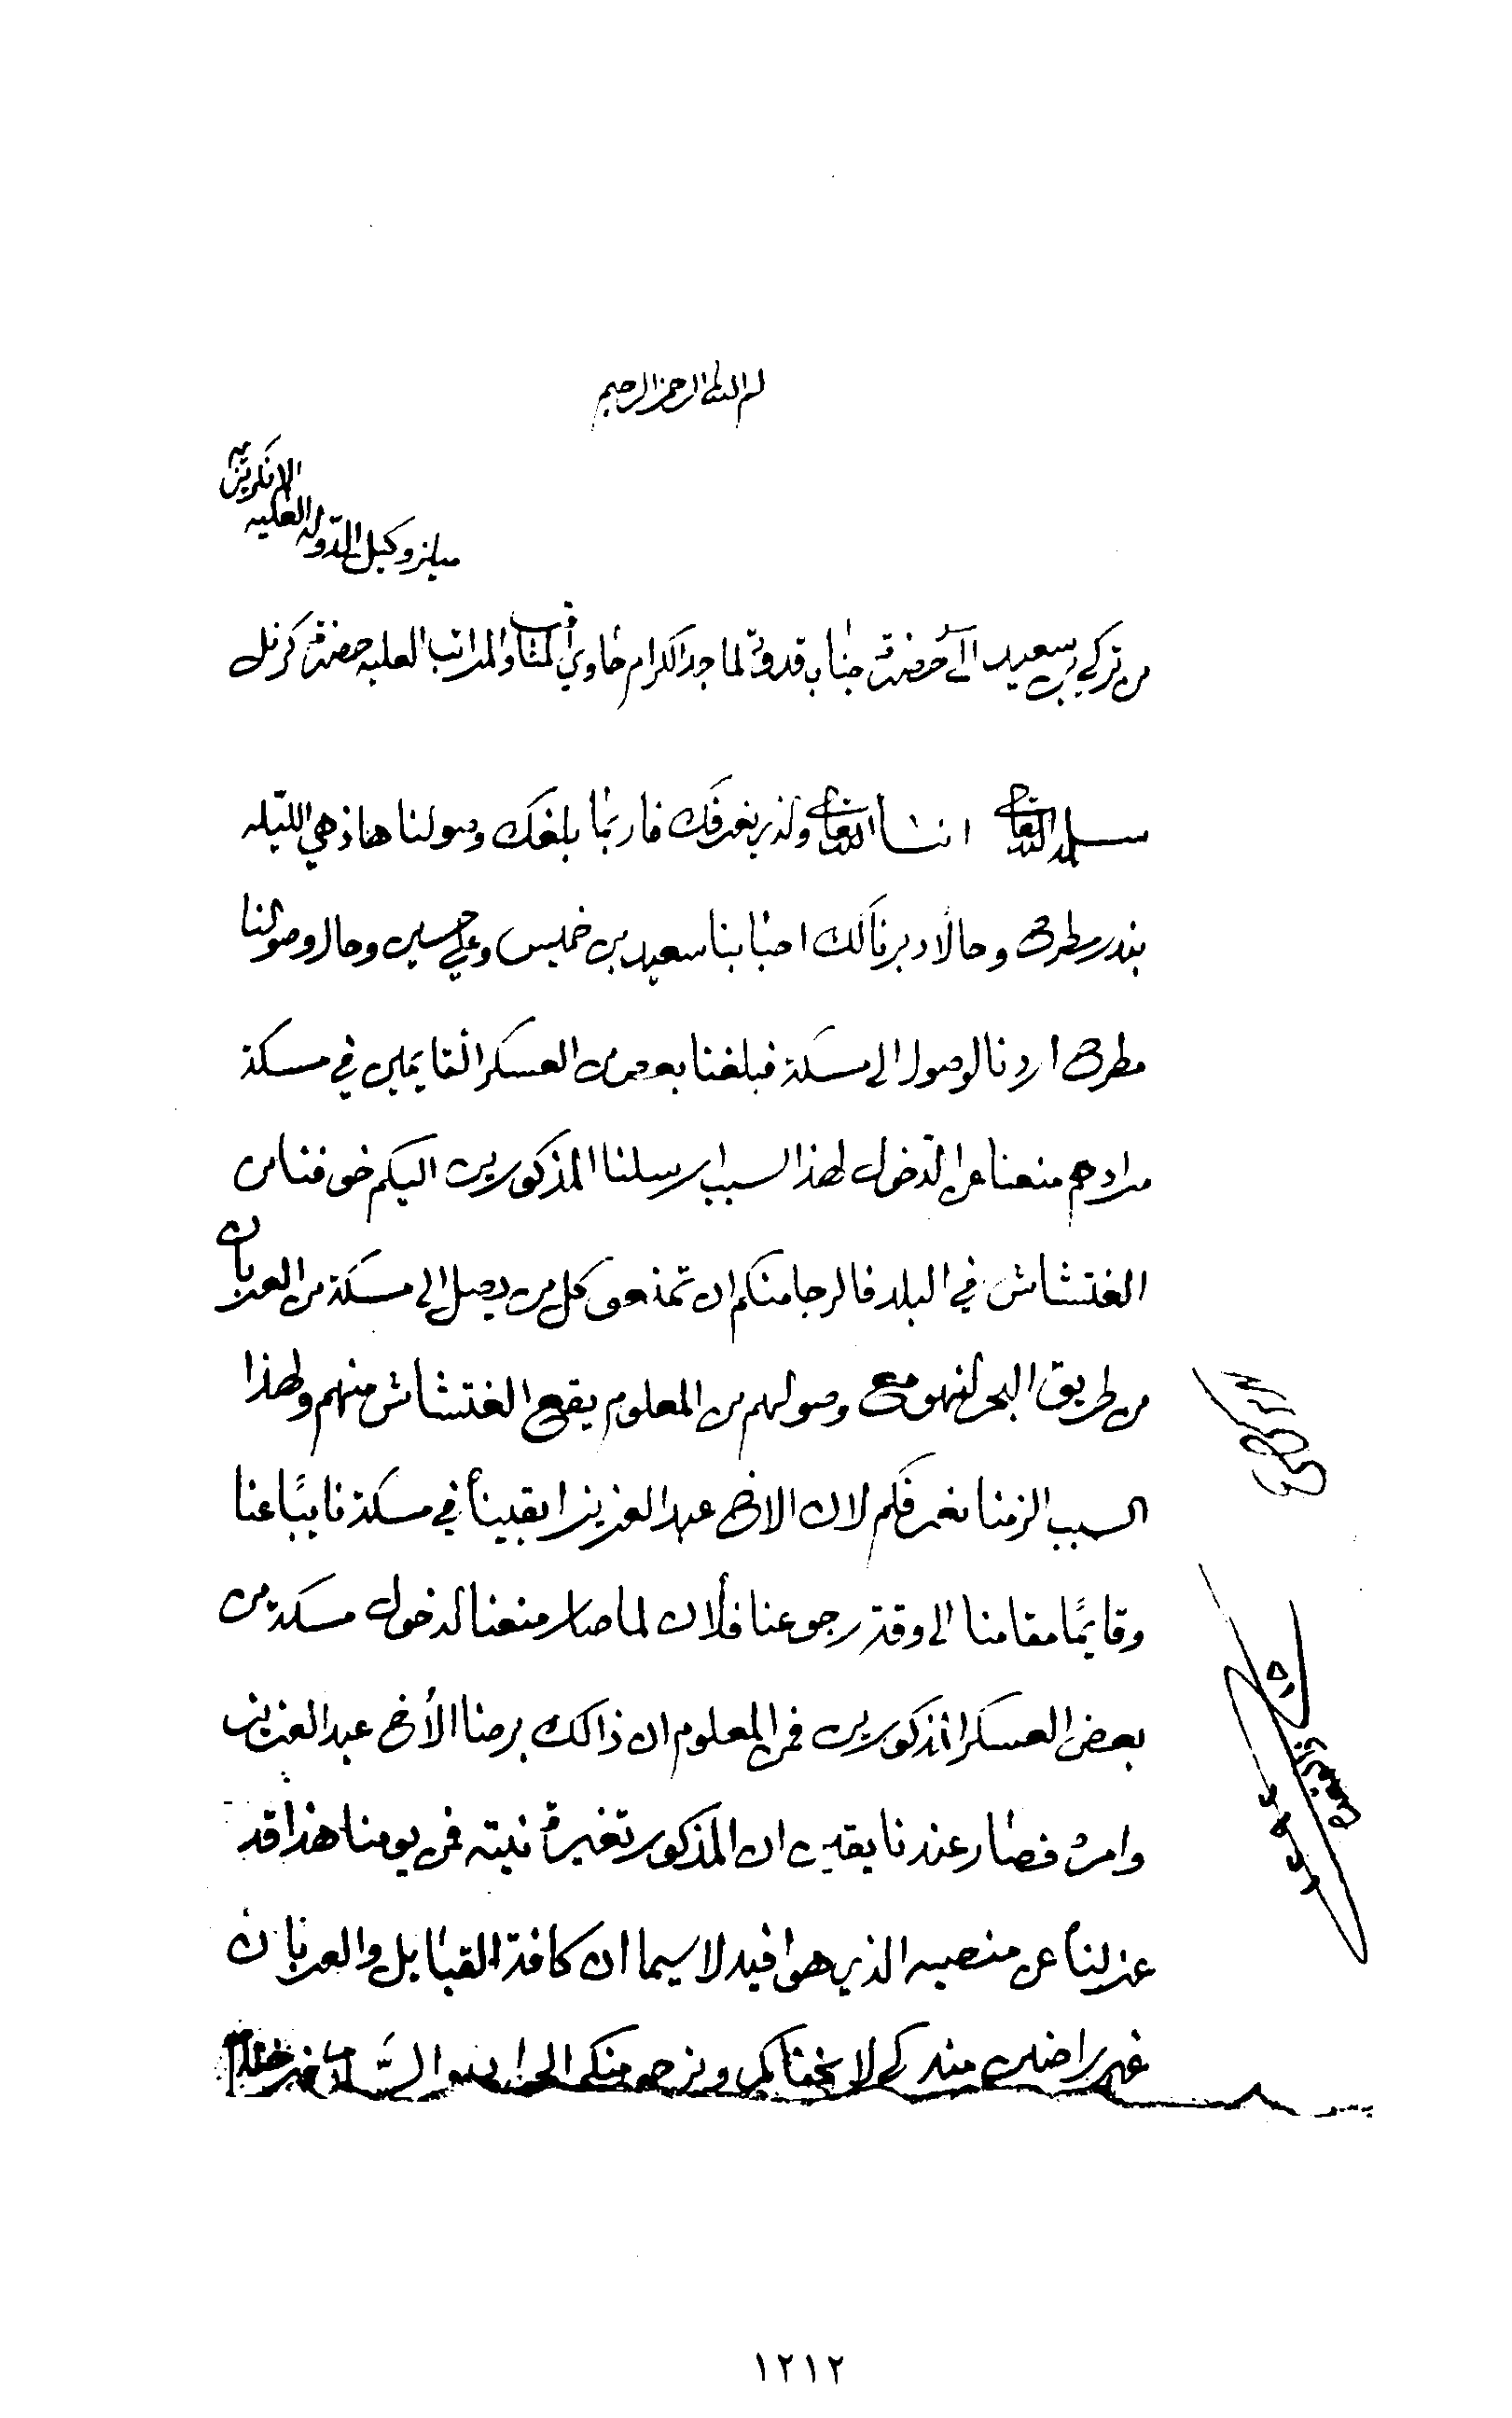 بسم الله الرحمن الرحيم
من تركي بن سعيد الى حضرة جناب قدوة الماجد الكرام حاوي المناقب والمراتب العليه حضرة كرنل
ميلز وكيل الدوله العليه
الانكريزيه
سلمه الله تعالى انشا الله تعالى ولذي نعرفك فا ربما بلغك وصولنا هاذهي الليله
بندر مطرح وحالا دبرنا لك احبابنا سعيد بن خميس وعلي حسين وحال وصولنا
مطرح اردنا الوصول الى مسكة فبلغنا بعض من العسكر القايمين في مسكة
مرادهم منعنا عن الدخول لهذا السبب ارسلنا المذكورين اليكم خوفنا من
الغتشاش في البلد فالرجا منكم ان تمنعو كل من يصل الى مسكة من العربان
من طريق البحر لنهو مع وصولهم من المعلوم يقع الغتشاش منهم ولهذا
السبب الزمنا نعرفكم لان الاخ عبد العزيز ابقيناً في مسكة نايبًا عنا
وقايمًا مقامنا الى وقة رجوعنا فلان لما صار منعنا لدخول مسكة من
بعض العسكر المذكورين فمن المعلوم ان ذالك برضا الأخ عبد العزيز
وامره فصار عندنا يقين ان المذكور تغيرة نيته فمن يومنا هذا قد
عزلناً عن منصبه الذي هوا فيه لا سيما ان كافة القبايل والعربان
غير راضين منه كي لا يخفاكم ونرجو منكم الجواب والسلام خير ختام
١٢١٢